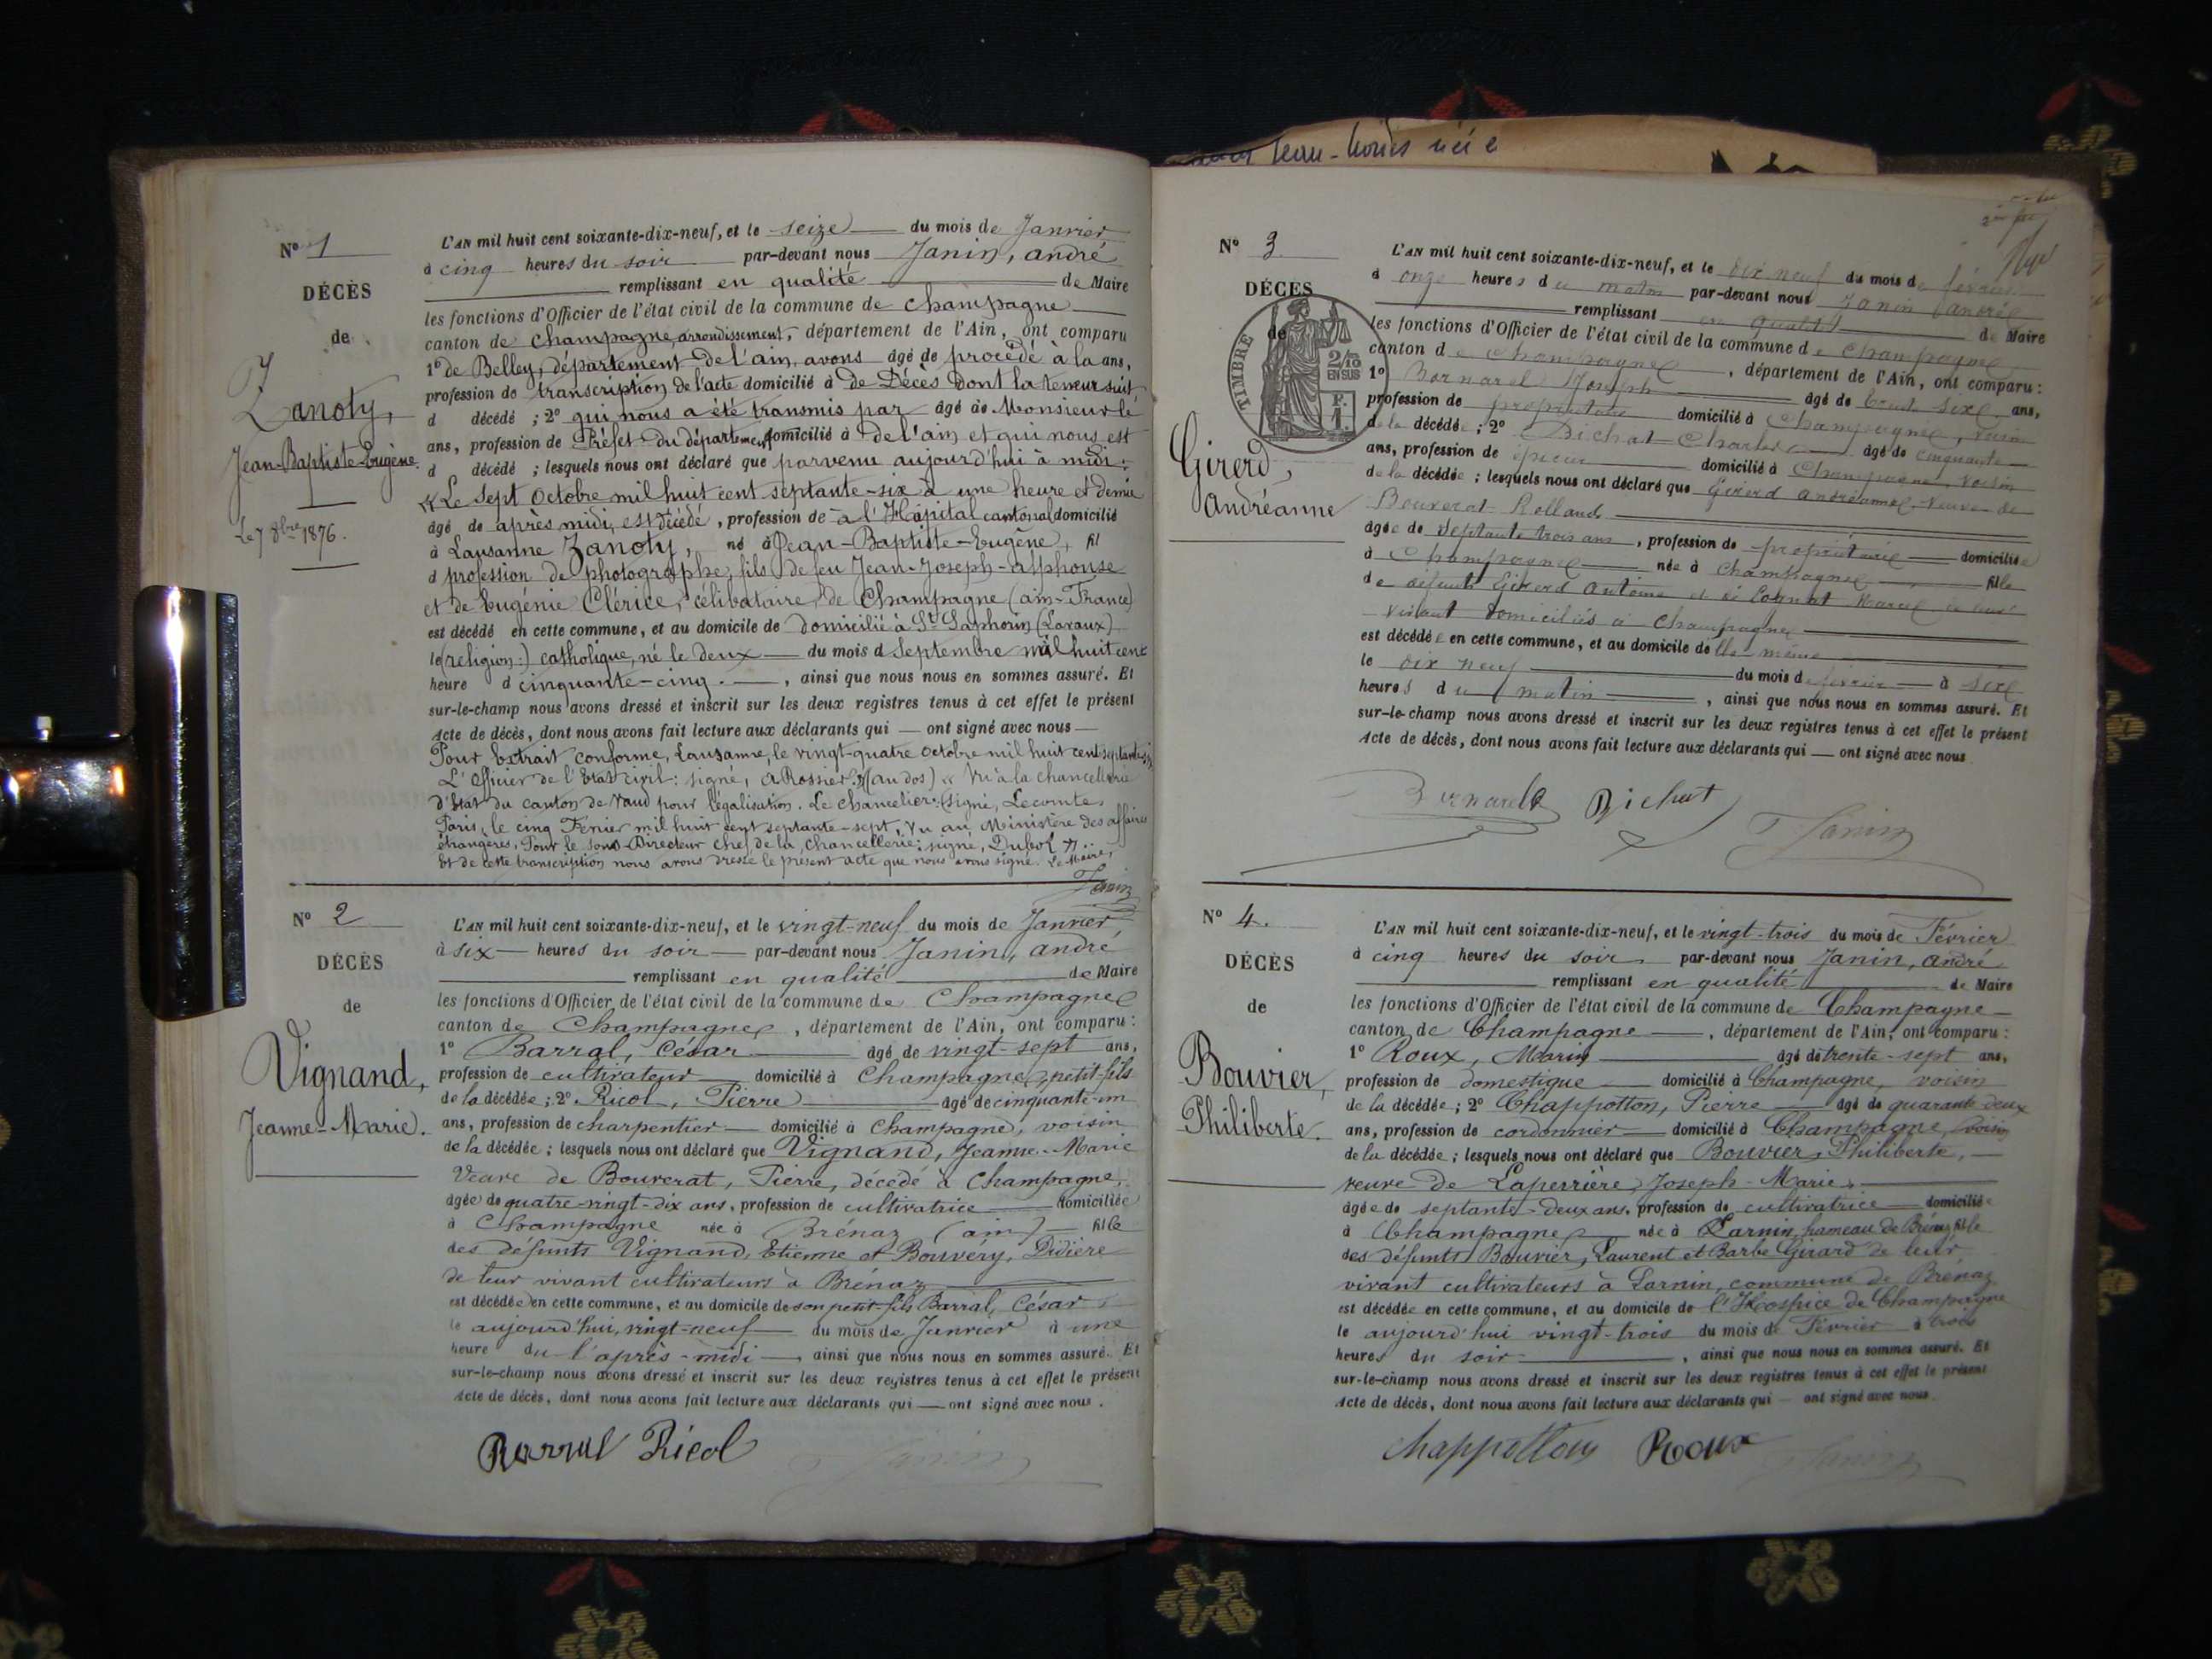 Jean-Louis née
N° 1
DÉCÈS
de
Zanoty,
Jean-Baptiste-Eugène.
Le 7 8bre 1876.
L'AN mil huit cent soixante-dix-neuf, et le seize du mois de Janvier
à cinq heures du soir par-devant nous Janin, andré
remplissant en qualité de Maire
les fonctions d'Officier de l'état civil de la commune de Champagne
canton de Champagne, arrondissement, département de l'Ain, ont comparu
1° de Belley, département de l'ain, avons âgé de procédé à la ans,
profession de transcription de l'acte domicilié à de Décès dont la teneur suit,
d décédé ; 2° qui nous a été transmis par âgé de Monsieur le
ans, profession de Préfet du département domicilié à de l'ain et qui nous est
d décédé ; lesquels nous ont déclaré que parvenu aujourd'hui à midi :
« Le sept Octobre mil huit cent septante-six à une heure et demie
âgé de après midi, est décédé, profession de à l'Hôpital cantonal domicilié
à Lausanne Zanoty, né à Jean-Baptiste-Eugène, fil
d profession de photographe, fils de feu Jean-Joseph-alphonse
et de Eugénie Clérice, célibataire, de Champagne (ain-France)
est décédé en cette commune, et au domicile de domicilié à St Saphorin (Lavaux)
le (religion:) catholique, né le deux du mois d Septembre mil huit cent
heure d cinquante-cinq. , ainsi que nous nous en sommes assuré. Et
sur-le-champ nous avons dressé et inscrit sur les deux registres tenus à cet effet le présent
Acte de décès, dont nous avons fait lecture aux déclarants qui — ont signé avec nous —
Pour Extrait conforme, Lausanne, le vingt-quatre octobre mil huit cent septante-six
L'Officier de l'Etat civil : signé, a Rossier (au dos) « Vu à la chancellerie
d'Etat du canton de Vaud pour légalisation. Le chancelier : (signé, Lecomte.
Paris, le cinq Février mil huit cent septante-sept, Vu au Ministère des affaires
étrangères, Pour le Sous-Directeur chef de la chancellerie : signé, Dubois »
Et de cette transcription nous avons dressé le présent acte que nous avons signé. Le Maire,
Janin
N° 2
DÉCÈS
de
Vignand,
Jeanne-Marie.
L'AN mil huit cent soixante-dix-neuf, et le vingt-neuf du mois de Janvier
à six heures du soir par-devant nous Janin, andré
remplissant en qualité de Maire
les fonctions d'Officier de l'état civil de la commune de Champagne
canton de Champagne, département de l'Ain, ont comparu :
1° Barral, César âgé de vingt-sept ans,
profession de cultivateur domicilié à Champagne, petit-fils
de la décédée ; 2° Ricol, Pierre âgé de cinquante-un
ans, profession de charpentier domicilié à Champagne, voisin
de la décédée ; lesquels nous ont déclaré que Vignand, Jeanne-Marie
Veuve de Bouverat, Pierre, décédé à Champagne,
âgée de quatre-vingt-dix ans, profession de cultivatrice domiciliée
à Champagne née à Brénaz (ain) fille
des défunts Vignand, Etienne et Bouvéry, Didière
de leur vivant cultivateurs à Brénaz
est décédée en cette commune, et au domicile de son petit-fils Barral, César
le aujourd'hui, vingt-neuf du mois de Janvier à une
heure du l'après-midi, ainsi que nous nous en sommes assuré. Et
sur-le-champ nous avons dressé et inscrit sur les deux registres tenus à cet effet le présent
Acte de décès, dont nous avons fait lecture aux déclarants qui — ont signé avec nous.
Barral Ricol Janin
N° 3.
DÉCÈS
de
TIMBRE
2/10
EN SUS
F.
1.
Girerd,
Andréanne
L'AN mil huit cent soixante-dix-neuf, et le dix neuf du mois de février
à onze heures du matin par-devant nous Janin andré
remplissant en qualité de Maire
les fonctions d'Officier de l'état civil de la commune de Champagne
canton de Champagne, département de l'Ain, ont comparu :
1° Bornarel Joseph âgé de trente six ans,
profession de propriétaire domicilié à Champagne, voisin
de la décédée ; 2° Dichat Charles âgé de cinquante
ans, profession de épicier domicilié à Champagne, voisin
de la décédée ; lesquels nous ont déclaré que Girerd andréanne veuve de
Bouverat Rolland
âgée de septante trois ans, profession de propriétaire domiciliée
à Champagne née à Champagne fille
de défunts Girerd Antoine et de de leur
vivant domiciliés à Champagne
est décédée en cette commune, et au domicile de elle même
le dix neuf du mois de février à six
heures du matin, ainsi que nous nous en sommes assuré. Et
sur-le-champ nous avons dressé et inscrit sur les deux registres tenus à cet effet le présent
Acte de décès, dont nous avons fait lecture aux déclarants qui — ont signé avec nous
Bornarel Dichat Janin
N° 4.
DÉCÈS
de
Bouvier,
Philiberte.
L'AN mil huit cent soixante-dix-neuf, et le vingt-trois du mois de Février
à cinq heures du soir par-devant nous Janin, andré
remplissant en qualité de Maire
les fonctions d'Officier de l'état civil de la commune de Champagne
canton de Champagne, département de l'Ain, ont comparu :
1° Roux, Marin âgé de trente-sept ans,
profession de domestique domicilié à Champagne, voisin
de la décédée ; 2° Chappotton, Pierre âgé de quarante deux
ans, profession de cordonnier domicilié à Champagne, voisin
de la décédée ; lesquels nous ont déclaré que Bouvier, Philiberte,
veuve de Laperrière, Joseph-Marie,
âgée de septante-deux ans, profession de cultivatrice domiciliée
à Champagne née à Parnin, hameau de Brénaz fille
des défunts Bouvier, Laurent et Barbe Girard de leur
vivant cultivateurs à Parnin, commune de Brénaz
est décédée en cette commune, et au domicile de l'Hospice de Champagne
le aujourd'hui vingt-trois du mois de Février à trois
heures du soir, ainsi que nous nous en sommes assuré. Et
sur-le-champ nous avons dressé et inscrit sur les deux registres tenus à cet effet le présent
Acte de décès, dont nous avons fait lecture aux déclarants qui — ont signé avec nous
Chappotton Roux Janin